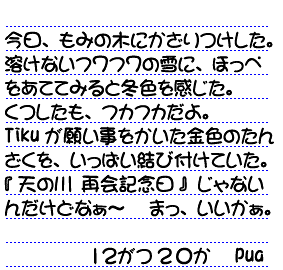 今日、もみの木にかざりつけした。
溶けないフワフワの雪に、ほっぺ
をあててみると冬色を感じた。
くつしたも、フカフカだよ。
Tikuが願い事をかいた金色のたん
ざくを、いっぱい結び付けていた。
『天の川 再会記念日』じゃない
んだけどなぁ～　まっ、いいかぁ。
12がつ20か　Pua